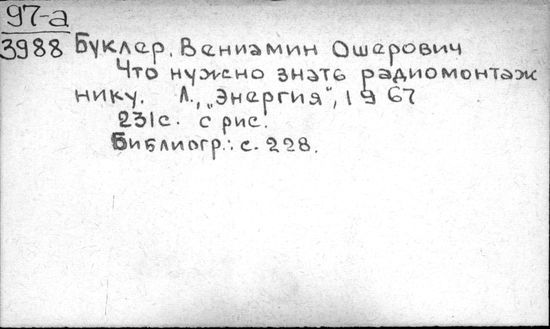 97-а
3988 Буклер, Вениамин Ошерович
Что нужно знать радиомонтаж
нику. Л., „Энергия", 1967
231с. с рис.
Библиогр.: с. 228.